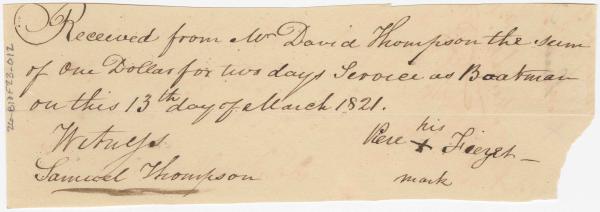 Received from Mr David Thompson the sum
of One Dollar for two days Service as Boatman
on this 13th day of March 1821.
Witness
his
Pere + Fiezet
Samuel Thompson
mark